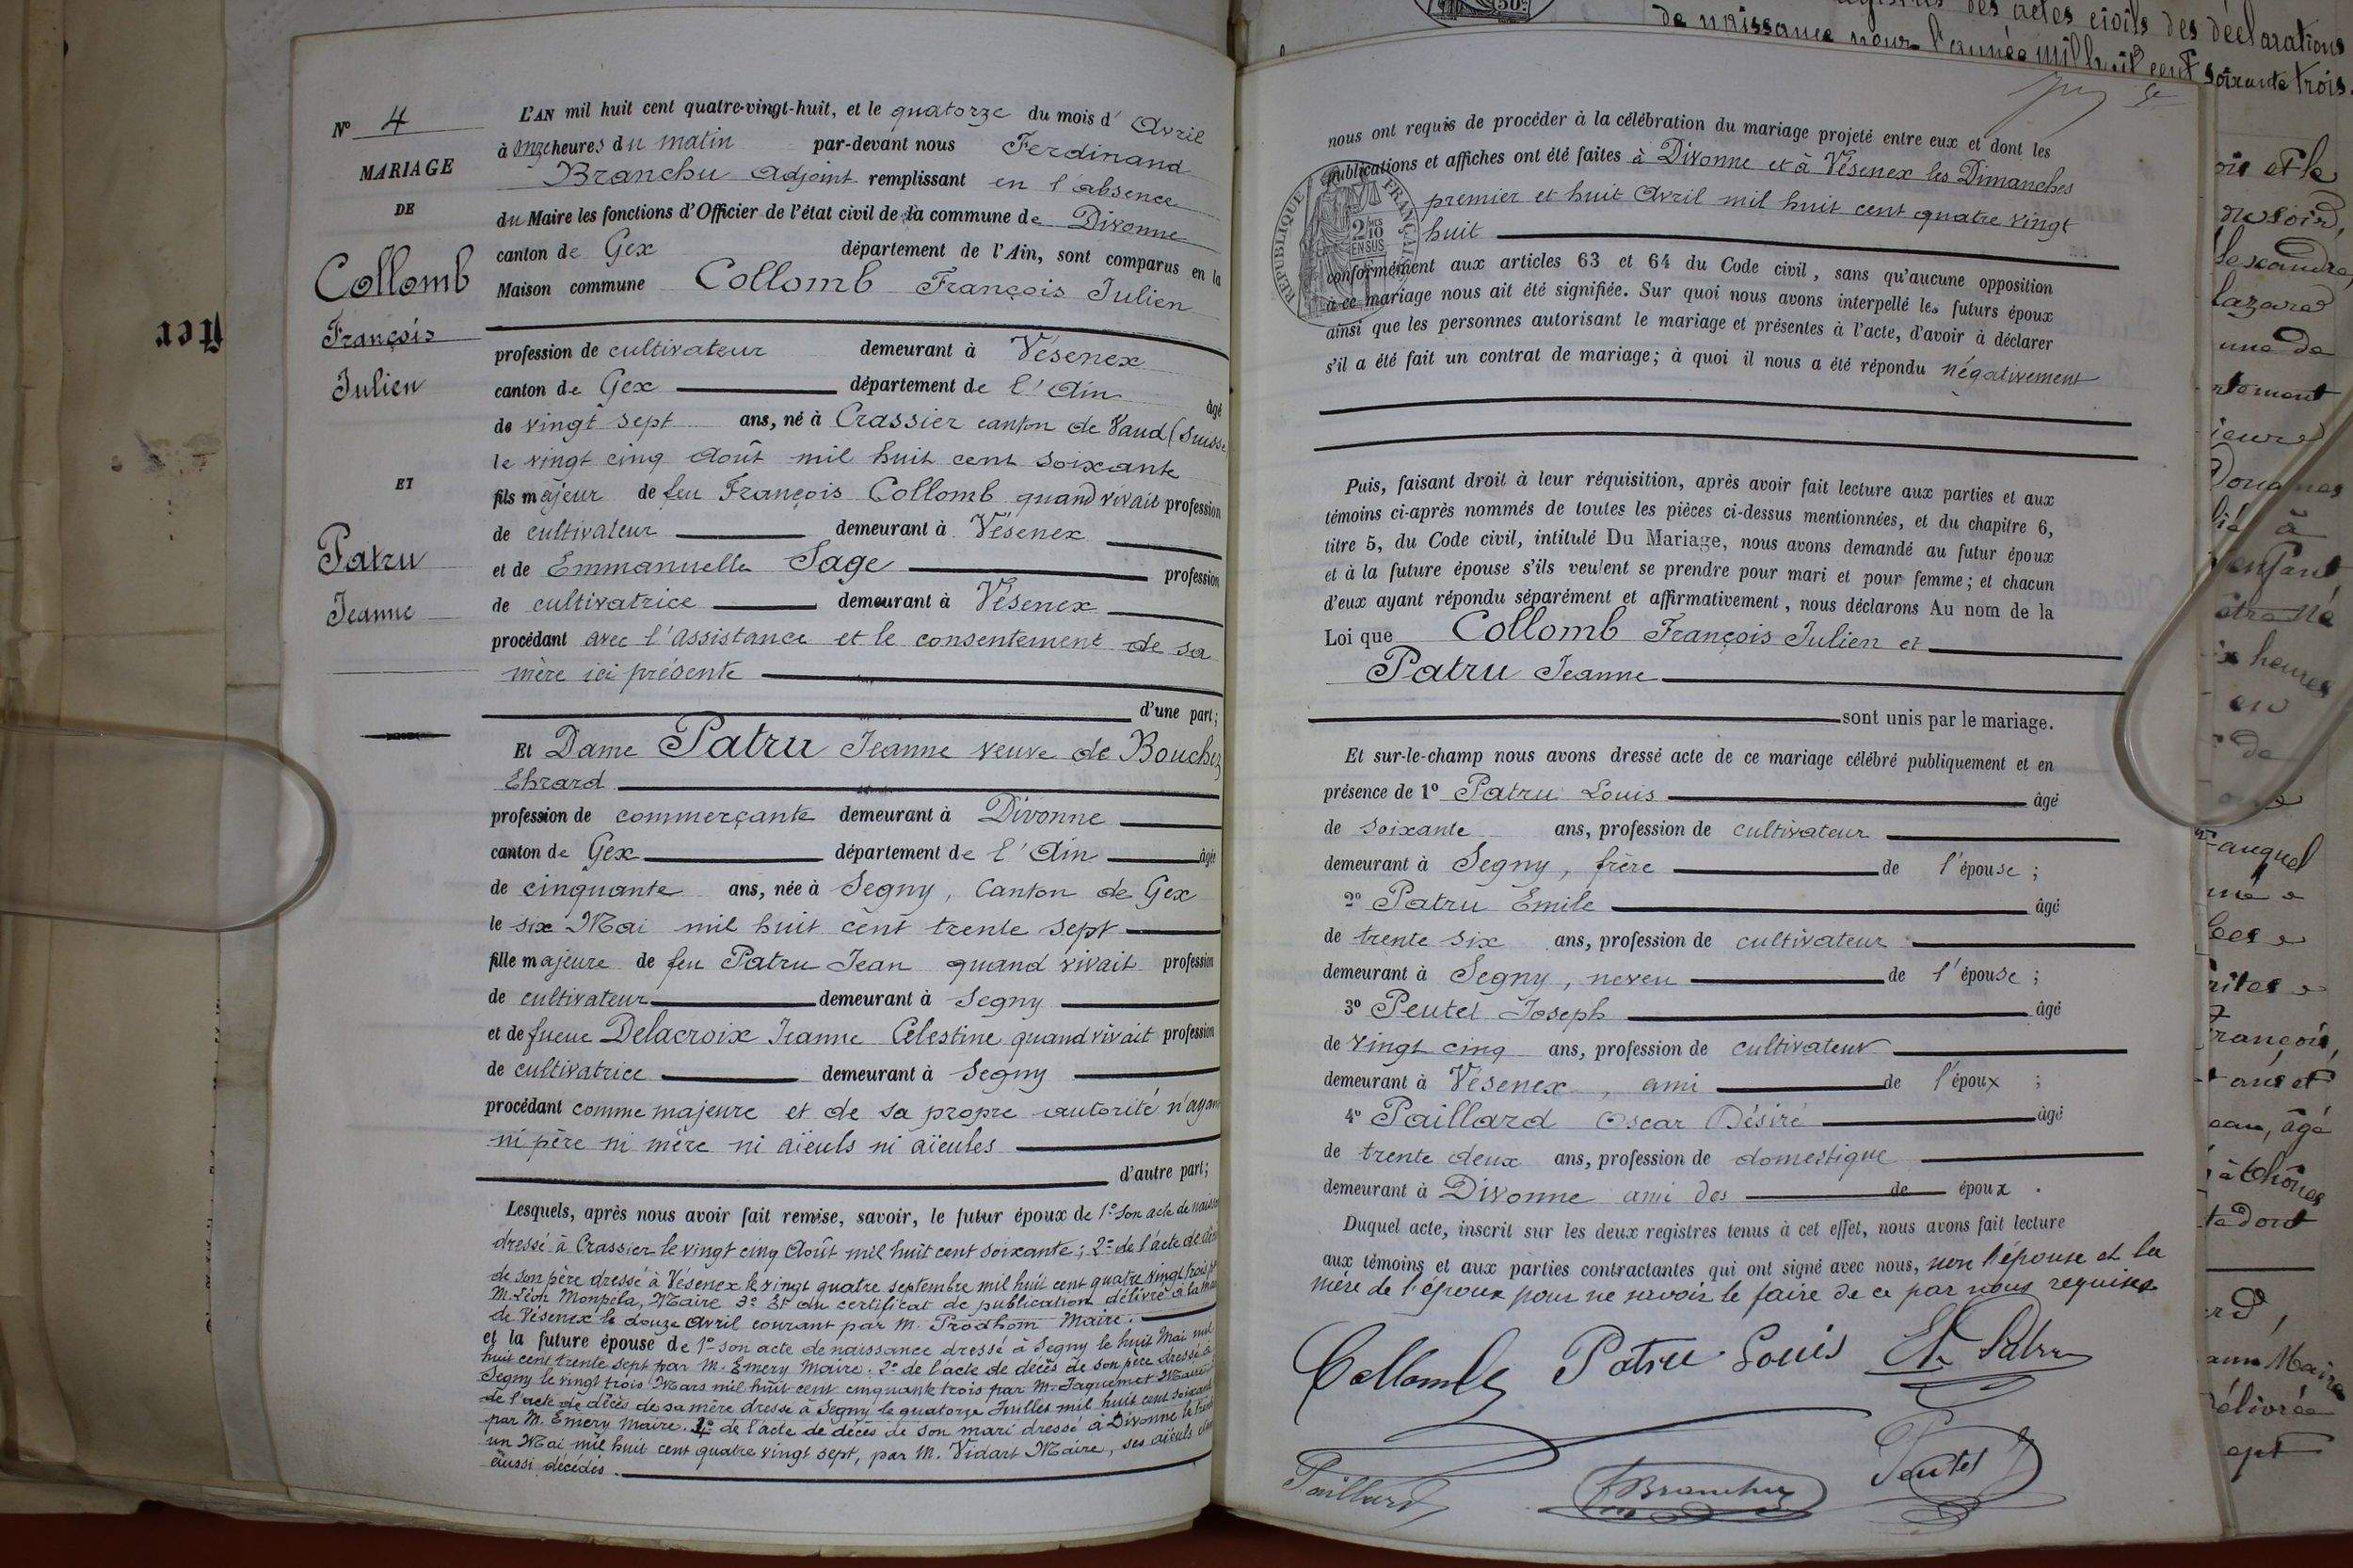 Nº 4
MARIAGE
DE
Collomb
François
Julien
ET
Patru
Jeanne
L'AN mil huit cent quatre-vingt-huit, et le quatorze du mois d' Avril
à onze heures du matin par-devant nous Ferdinand
Branchu adjoint remplissant en l'absence
du Maire les fonctions d'Officier de l'état civil de la commune de Divonne
canton de Gex département de l'Ain, sont comparus en la
Maison commune Collomb François Julien
profession de cultivateur demeurant à Vésenex
canton de Gex département de l'Ain âgé
de vingt sept ans, né à Crassier canton de Vaud (Suisse
le vingt cinq Août mil huit cent soixante
fils majeur de feu François Collomb quand vivait profession
de cultivateur demeurant à Vésenex
et de Emmanuelle Sage profession
de cultivatrice demeurant à Vésenex
procédant avec l'assistance et le consentement de sa
mère ici présente
d'une part;
Et Dame Patru Jeanne veuve de Bouchez
Ehrard
profession de commerçante demeurant à Divonne
canton de Gex département de l'Ain âgée
de cinquante ans, née à Segny, Canton de Gex
le six Mai mil huit cent trente sept
fille majeure de feu Patru Jean quand vivait profession
de cultivateur demeurant à Segny
et de fueue Delacroix Jeanne Célestine quand vivait profession
de cultivatrice demeurant à Segny
procédant comme majeure et de sa propre autorité n'ayant
ni père ni mère ni aïeuls ni aïeules
d'autre part;
Lesquels, après nous avoir fait remise, savoir, le futur époux de 1º son acte de naissa
dressé à Crassier le vingt cinq Août mil huit cent soixante; 2º de l'acte de
de son père dressé à Vésenex le vingt quatre septembre mil huit cent quatre vingt trois
M. Léon Monpéla, Maire 3º Et du certificat de publication délivré à la
de Vésenex le douze Avril courant par M. Prodhom Maire.
et la future épouse de 1º son acte de naissance dressé à Segny le huit Mai mil
huit cent trente sept par M. Emery Maire. 2º de l'acte de décès de son père dressé à
Segny le vingt trois Mars mil huit cent cinquante trois par M. Jaquemet Maire
de l'acte de décès de sa mère dressé à Segny le quatorze Juillet mil huit cent soixante
par M. Emery Maire. 4º de l'acte de décès de son mari dressé à Divonne le trente
un Mai mil huit cent quatre vingt sept, par M. Vidart Maire, ses aïeuls
aussi décédés.
nous ont requis de procéder à la célébration du mariage projeté entre eux et dont les
publications et affiches ont été faites à Divonne et à Vésenex les Dimanches
premier et huit Avril mil huit cent quatre vingt
huit
conformément aux articles 63 et 64 du Code civil, sans qu'aucune opposition
à ce mariage nous ait été signifiée. Sur quoi nous avons interpellé les futurs époux
ainsi que les personnes autorisant le mariage et présentes à l'acte, d'avoir à déclarer
s'il a été fait un contrat de mariage; à quoi il nous a été répondu négativement
Puis, faisant droit à leur réquisition, après avoir fait lecture aux parties et aux
témoins ci-après nommés de toutes les pièces ci-dessus mentionnées, et du chapitre 6,
titre 5, du Code civil, intitulé Du Mariage, nous avons demandé au futur époux
et à la future épouse s'ils veulent se prendre pour mari et pour femme; et chacun
d'eux ayant répondu séparément et affirmativement, nous déclarons Au nom de la
Loi que Collomb François Julien et
Patru Jeanne
sont unis par le mariage.
Et sur-le-champ nous avons dressé acte de ce mariage célébré publiquement et en
présence de 1º Patru Louis âgé
de soixante ans, profession de cultivateur
demeurant à Segny, frère de l'épouse;
2º Patru Emile âgé
de trente six ans, profession de cultivateur
demeurant à Segny, neveu de l'épouse;
3º Peutet Joseph âgé
de vingt cinq ans, profession de cultivateur
demeurant à Vésenex, ami de l'époux;
4º Paillard Oscar Désiré âgé
de trente deux ans, profession de domestique
demeurant à Divonne ami des de époux.
Duquel acte, inscrit sur les deux registres tenus à cet effet, nous avons fait lecture
aux témoins et aux parties contractantes qui ont signé avec nous, non l'épouse et la
mère de l'époux pour ne savoir le faire de ce par nous requises
Collomb Patru Louis Patru
Paillard Branchu Peutet
REPUBLIQUE FRANÇAISE
2 MES
10
EN SUS
des actes civils des déclarations
de naissance pour l'année mil huit cent soixante trois.
et le
du soir,
lazard
une de
à
l'enfant
heures
en
de
auquel
François,
ans et
âgé
dont
Maire
délivrée